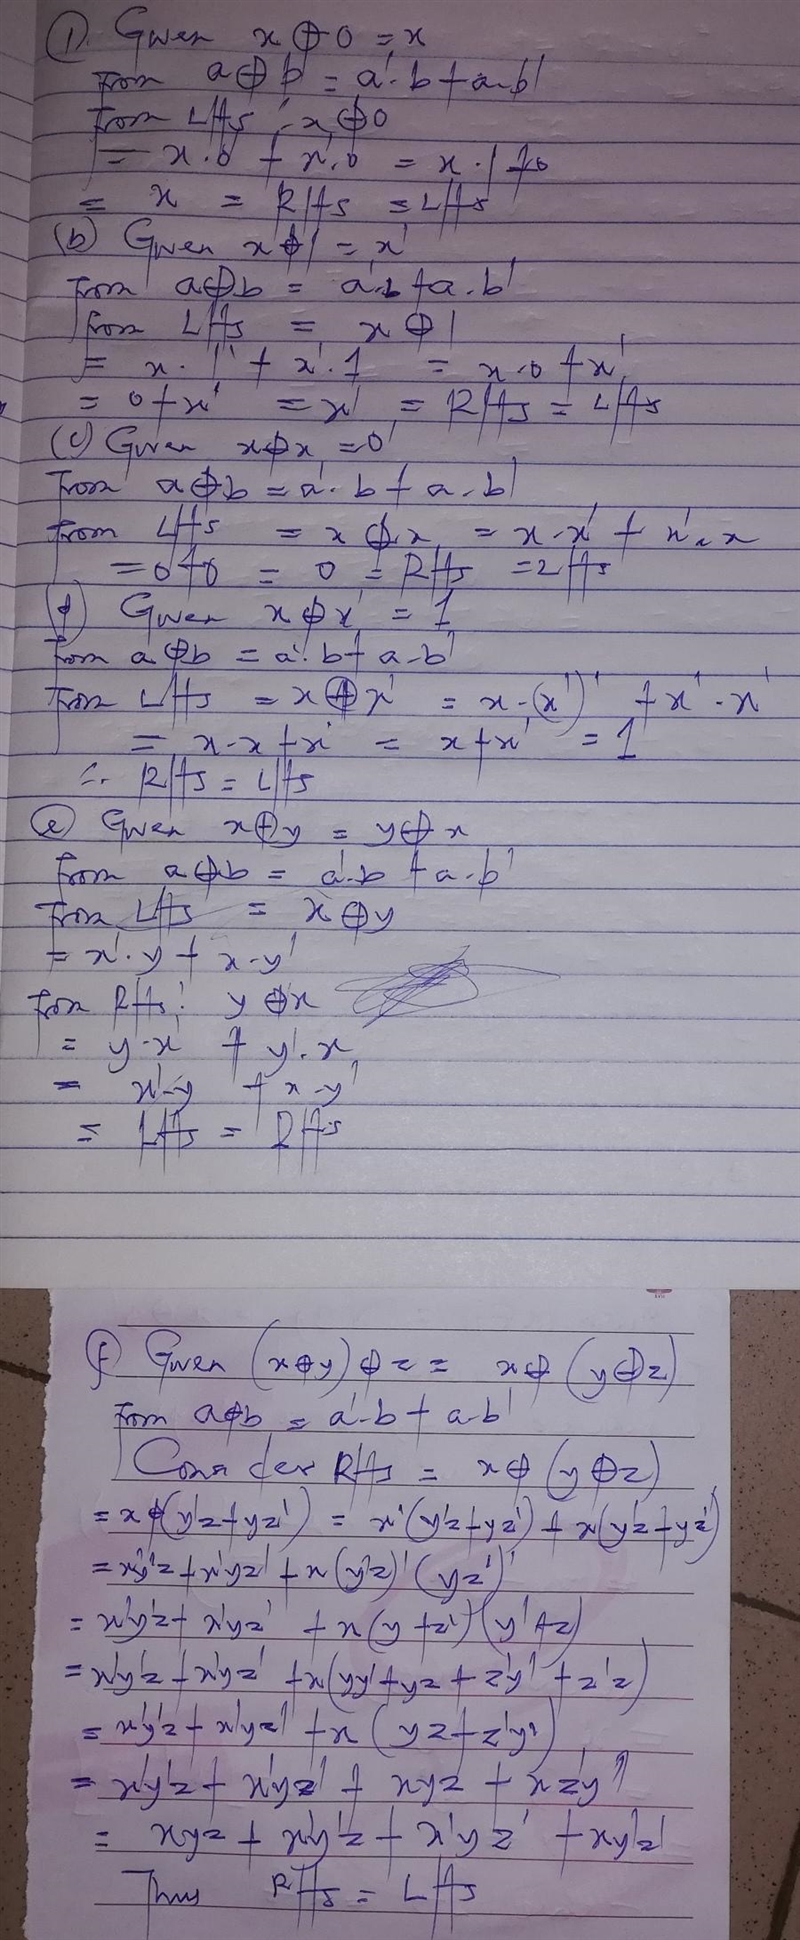 1. Given x⊕0 = x
From a⊕b = a'·b + a·b'
From LHS : x⊕0
= x·0' + x'·0 = x·1 + 0
= x = RHS = LHS
(b) Given x⊕1 = x'
From a⊕b = a'·b + a·b'
From LHS = x⊕1
= x·1' + x'·1 = x·0 + x'
= 0 + x' = x' = RHS = LHS
(c) Given x⊕x = 0
From a⊕b = a'·b + a·b'
From LHS = x⊕x = x·x' + x'·x
= 0+0 = 0 = RHS = LHS
Given x⊕x' = 1
From a⊕b = a'·b + a·b'
From LHS = x⊕x' = x·(x')' + x'·x'
= x·x + x' = x + x' = 1
∴ RHS = LHS
(e) Given x⊕y = y⊕x
From a⊕b = a'·b + a·b'
From LHS = x⊕y
= x'·y + x·y'
From RHS: y⊕x
= y·x' + y'·x
= x'·y + x·y'
= LHS = RHS
(f) Given (x⊕y)⊕z = x⊕(y⊕z)
From a⊕b = a'·b + a·b'
Consider RHS = x⊕(y⊕z)
= x⊕(y'z + yz') = x'(y'z + yz') + x(y'z + yz')'
= x'y'z + x'yz' + x(y'z)'(yz')'
= x'y'z + x'yz' + x(y+z')(y'+z)
= x'y'z + x'yz' + x(yy' + yz + z'y' + z'z)
= x'y'z + x'yz' + x(yz + z'y')
= x'y'z + x'yz' + xyz + xz'y'
= xyz + x'y'z + x'yz' + xy'z'
Thus RHS = LHS